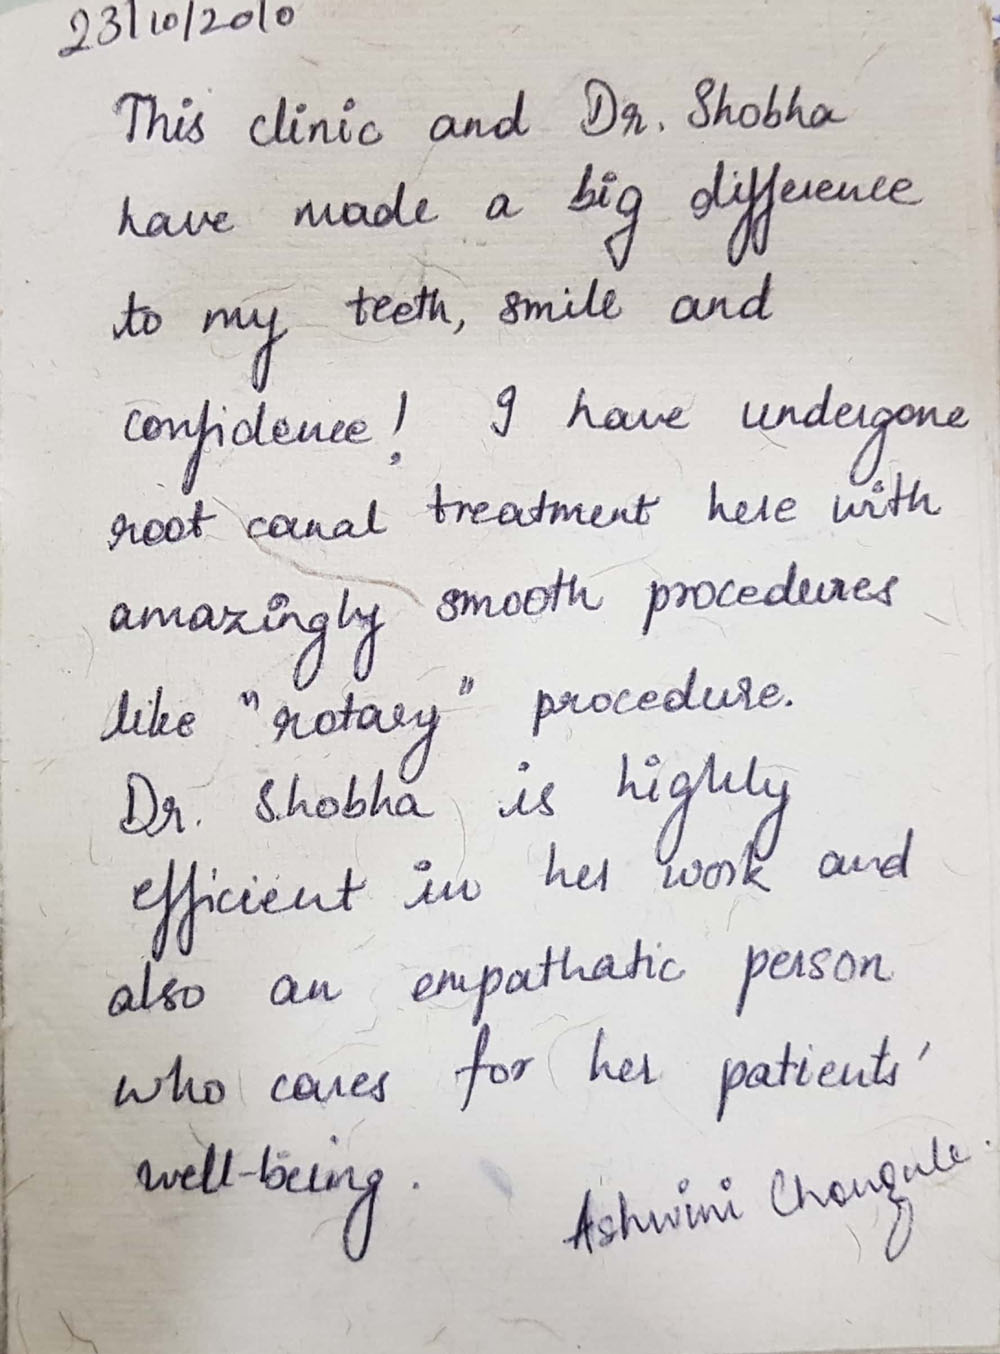 23/10/2010
This clinic and Dr. Shobha
have made a big difference
to my teeth, smile and
confidence! I have undergone
root canal treatment here with
amazingly smooth procedures
like "rotary" procedure.
Dr. Shobha is highly
efficient in her work and
also an empathatic person
who cares for her patients'
well-being.
Ashwini Chougule.